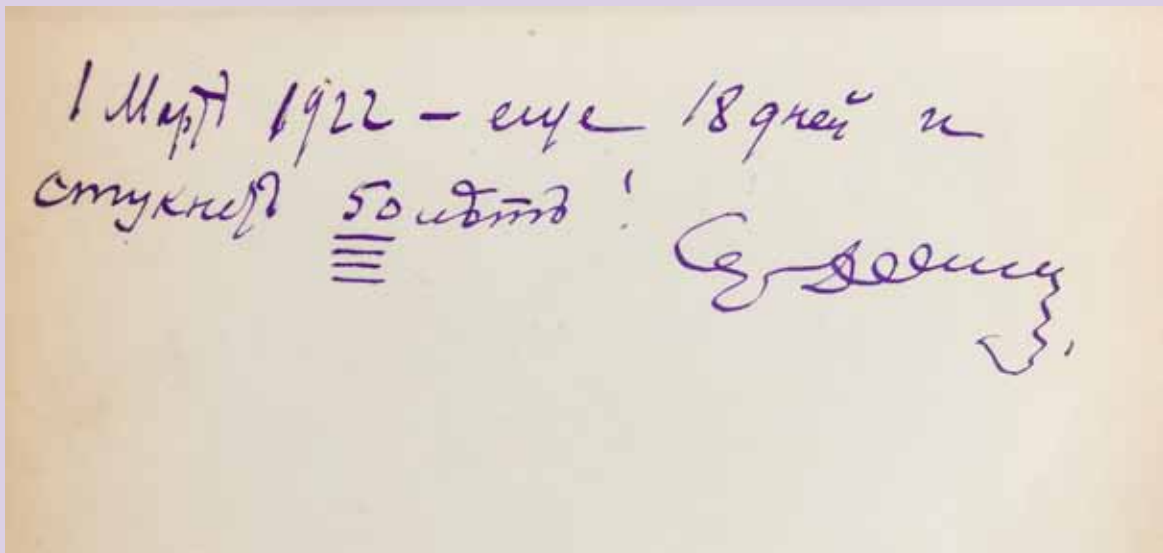 1 Мартъ 1922 – еще 18 дней и
стукнетъ 50 лѣтъ!